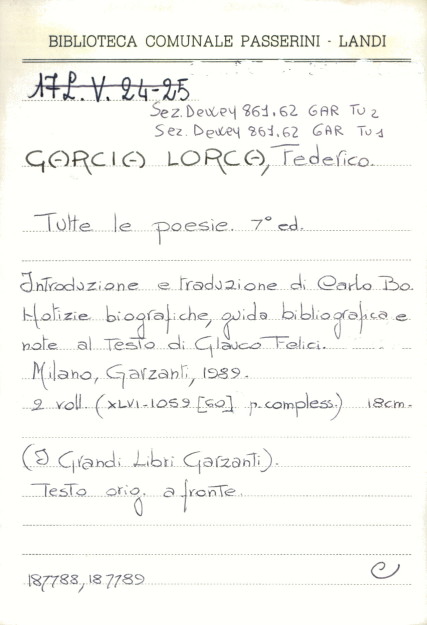 BIBLIOTECA COMUNALE PASSERINI - LANDI
17L.V. 24-25
Sez. Dewey 861.62 GAR TU 2
Sez. Dewey 861.62 GAR TU 1
GARCIA LORCA, Federico.
Tutte le poesie. 7° ed.
Introduzione e traduzione di Carlo Bo.
Notizie biografiche, guida bibliografica e
note al testo di Glauco Felici.
Milano, Garzanti, 1989.
2 voll. (XLVI-1059 [60] p. compless.) 18cm.
(I Grandi Libri Garzanti).
Testo orig. a fronte.
187788, 187789
C